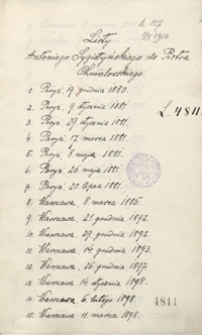 K. 157
Listy
Antoniego Sygietyńskiego do Piotra
Chmielowskiego.
1. Paryż, 19. grudnia 1880.
2. Paryż, 9. stycznia 1881.
3. Paryż, 27. stycznia 1881.
4. Paryż, 17. marca 1881.
5. Paryż, 8. maja 1881.
6. Paryż, 26. maja 1881.
7. Paryż, 20. lipca 1881.
8. Warszawa, 8. marca 1885.
9. Warszawa, 21. grudnia 1892.
10. Warszawa, 29. grudnia 1892.
11. Warszawa, 14. grudnia 1893.
12. Warszawa, 26. grudnia 1897.
13. Warszawa, 14. stycznia 1898.
14. Warszawa, 6. lutego 1898.
15. Warszawa, 11. marca 1898.
4811